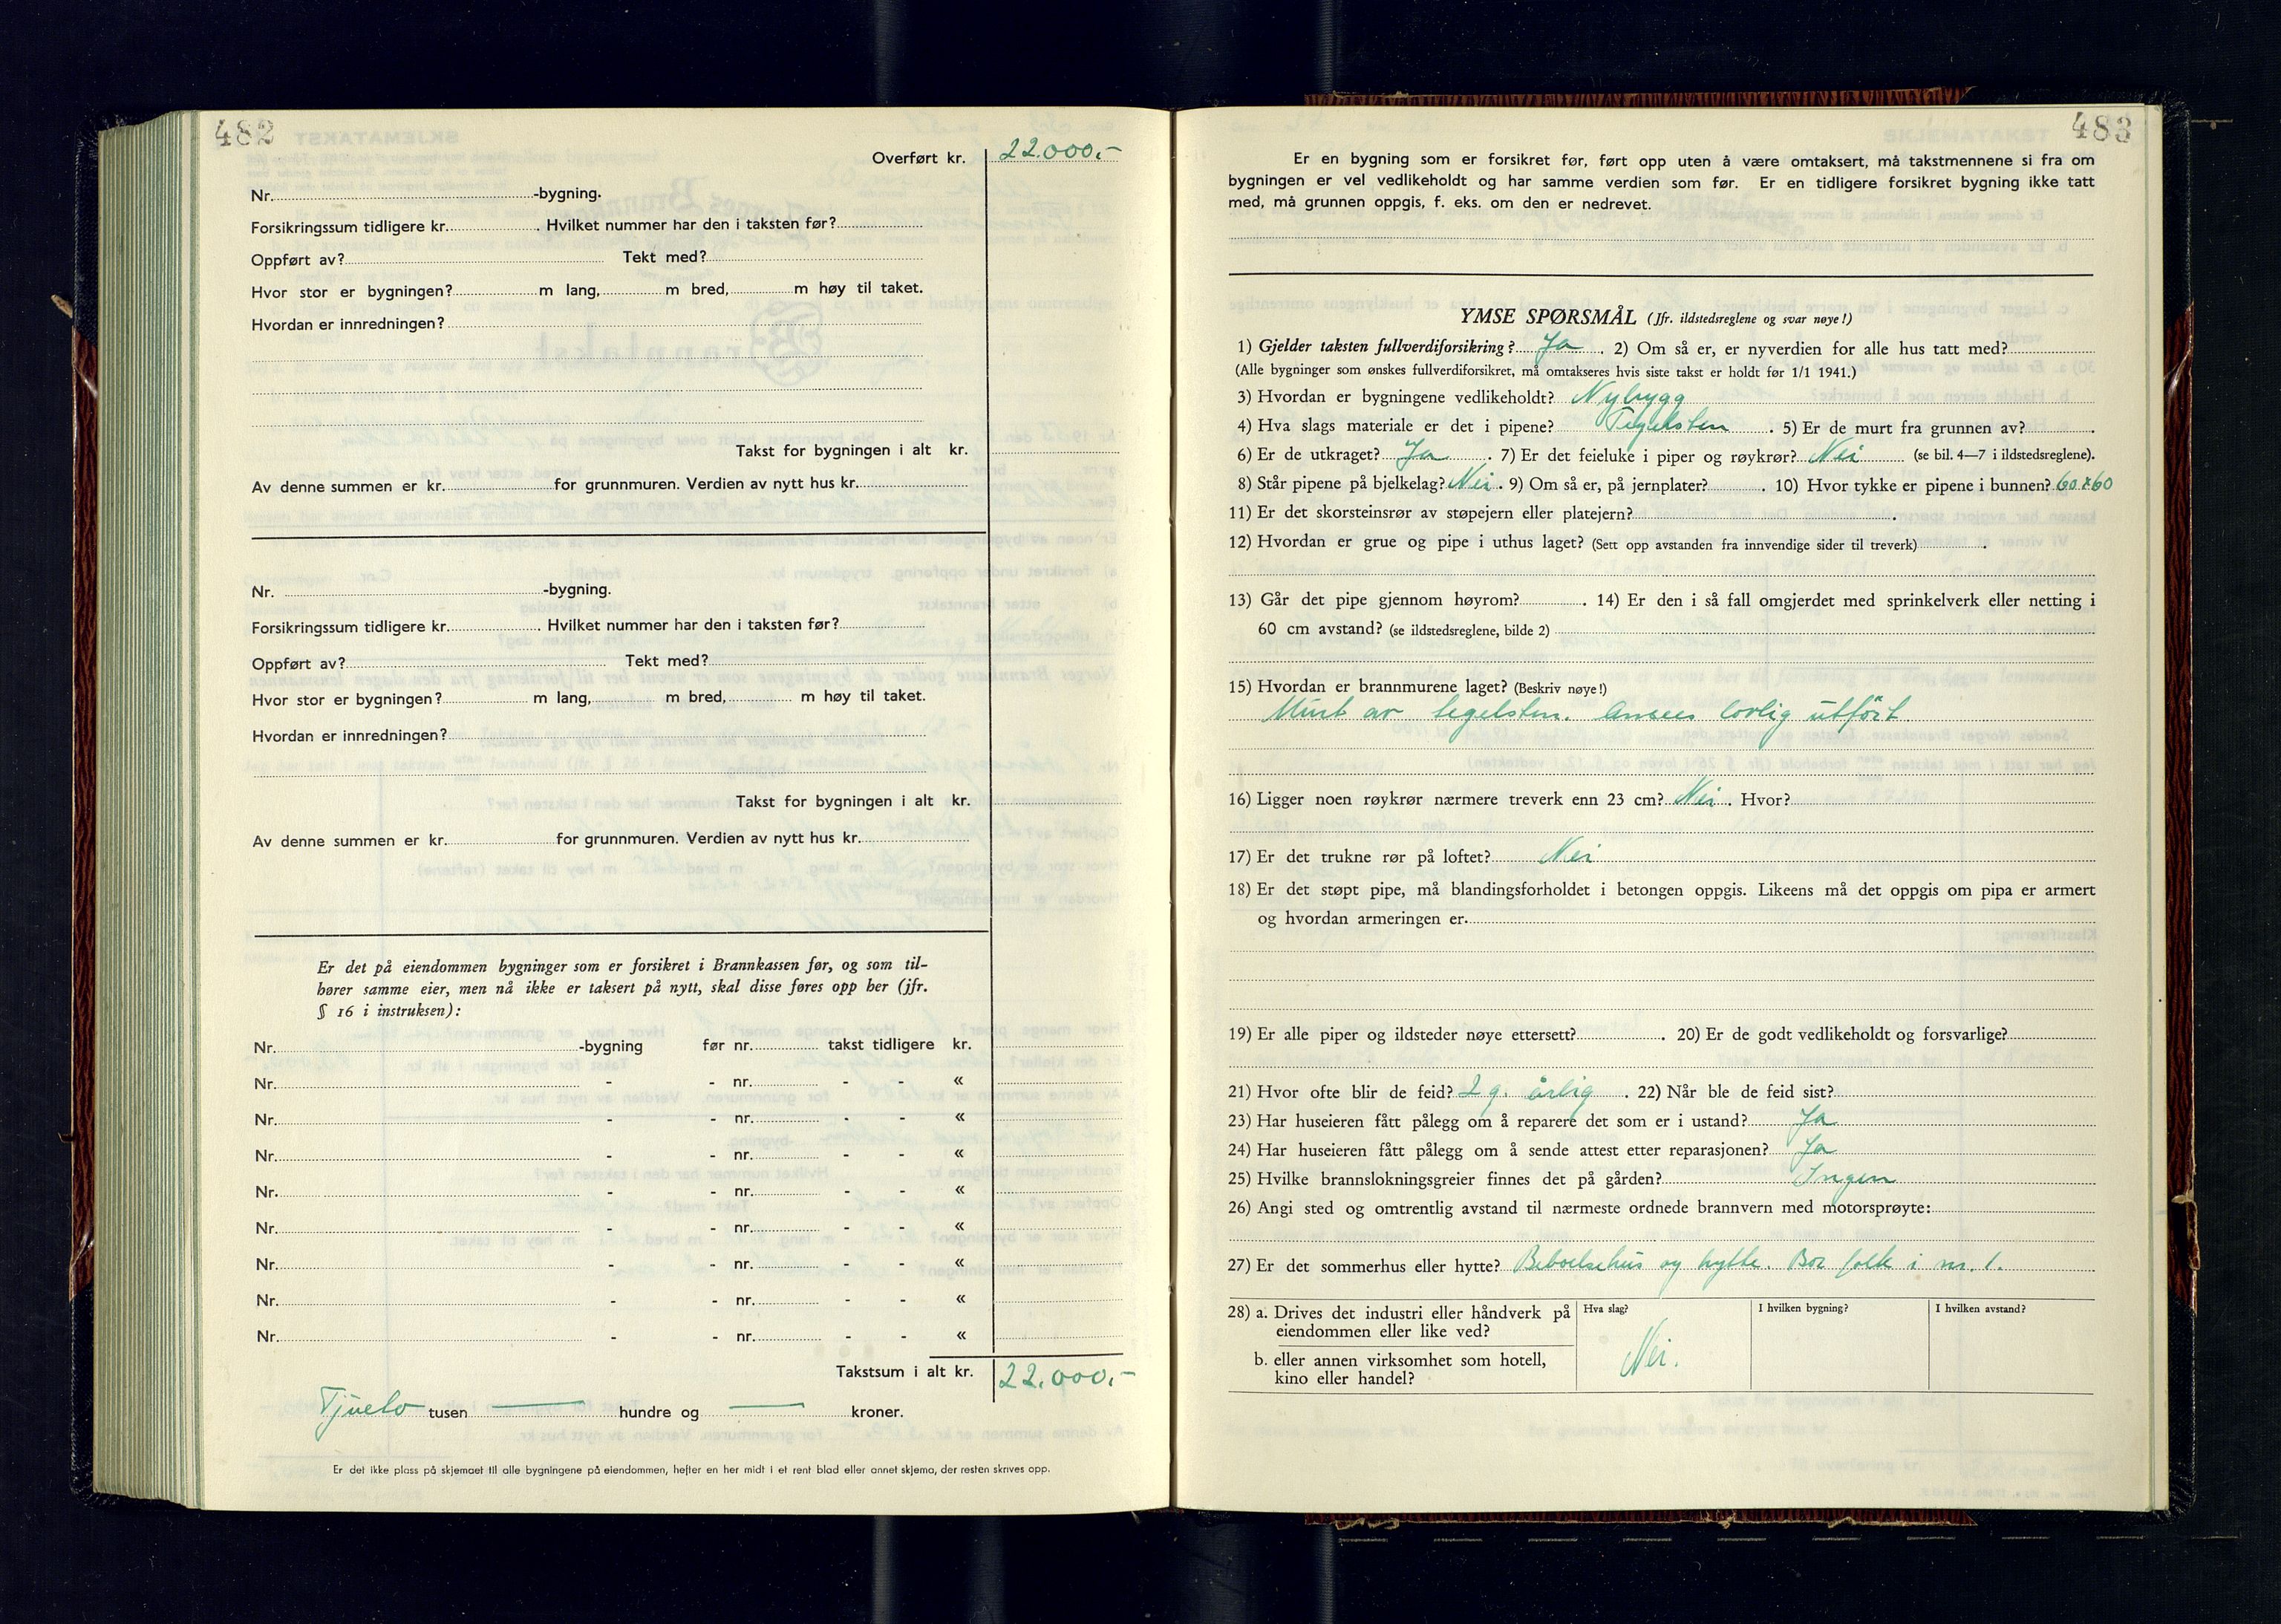 482
Overført kr. 22.000,-
Nr. -bygning.
Forsikringssum tidligere kr. . Hvilket nummer har den i taksten før?
Oppført av? Tekt med?
Hvor stor er bygningen? m lang, m bred, m høy til taket.
Hvordan er innredningen?
Takst for bygningen i alt kr.
Av denne summen er kr. for grunnmuren. Verdien av nytt hus kr.
Nr. -bygning.
Forsikringssum tidligere kr. . Hvilket nummer har den i taksten før?
Oppført av? Tekt med?
Hvor stor er bygningen? m lang, m bred, m høy til taket.
Hvordan er innredningen?
Takst for bygningen i alt kr.
Av denne summen er kr. for grunnmuren. Verdien av nytt hus kr.
Er det på eiendommen bygninger som er forsikret i Brannkassen før, og som til-
hører samme eier, men nå ikke er taksert på nytt, skal disse føres opp her (jfr.
§ 16 i instruksen):
Nr. -bygning før nr. takst tidligere kr.
Nr. - - nr. - - «
Nr. - - nr. - - «
Nr. - - nr. - - «
Nr. - - nr. - - «
Nr. - - nr. - - «
Nr. - - nr. - - «
Nr. - - nr. - - «
Nr. - - nr. - - «
Takstsum i alt kr. 22.000,-
Tjueto tusen — hundre og — kroner.
Er det ikke plass på skjemaet til alle bygningene på eiendommen, hefter en her midt i et rent blad eller annet skjema, der resten skrives opp.
483
Er en bygning som er forsikret før, ført opp uten å være omtaksert, må takstmennene si fra om
bygningen er vel vedlikeholdt og har samme verdien som før. Er en tidligere forsikret bygning ikke tatt
med, må grunnen oppgis, f. eks. om den er nedrevet.
YMSE SPØRSMÅL (Jfr. ildstedsreglene og svar nøye!)
1) Gjelder taksten fullverdiforsikring? Ja . 2) Om så er, er nyverdien for alle hus tatt med?
(Alle bygninger som ønskes fullverdiforsikret, må omtakseres hvis siste takst er holdt før 1/1 1941.)
3) Hvordan er bygningene vedlikeholdt? Nybygg
4) Hva slags materiale er det i pipene? Tegelsten . 5) Er de murt fra grunnen av? .
6) Er de utkraget? Ja . 7) Er det feieluke i piper og røykrør? Nei (se bil. 4—7 i ildstedsreglene).
8) Står pipene på bjelkelag? Nei . 9) Om så er, på jernplater? . 10) Hvor tykke er pipene i bunnen? 60x60
11) Er det skorsteinsrør av støpejern eller platejern? .
12) Hvordan er grue og pipe i uthus laget? (Sett opp avstanden fra innvendige sider til treverk) .
13) Går det pipe gjennom høyrom? . 14) Er den i så fall omgjerdet med sprinkelverk eller netting i
60 cm avstand? (se ildstedsreglene, bilde 2)
15) Hvordan er brannmurene laget? (Beskriv nøye!)
Murt av tegelsten. Ansees lovlig utført
16) Ligger noen røykrør nærmere treverk enn 23 cm? Nei . Hvor?
17) Er det trukne rør på loftet? Nei
18) Er det støpt pipe, må blandingsforholdet i betongen oppgis. Likeens må det oppgis om pipa er armert
og hvordan armeringen er.
19) Er alle piper og ildsteder nøye ettersett? . 20) Er de godt vedlikeholdt og forsvarlige?
21) Hvor ofte blir de feid? 2 g. årlig . 22) Når ble de feid sist?
23) Har huseieren fått pålegg om å reparere det som er i ustand? Ja
24) Har huseieren fått pålegg om å sende attest etter reparasjonen? Ja
25) Hvilke brannslokningsgreier finnes det på gården? Ingen
26) Angi sted og omtrentlig avstand til nærmeste ordnede brannvern med motorsprøyte:
27) Er det sommerhus eller hytte? Beboelsehus og hytte. Bor folk i nr. 1.
28) a. Drives det industri eller håndverk på Hva slag? I hvilken bygning? I hvilken avstand?
eiendommen eller like ved?
Nei.
b. eller annen virksomhet som hotell,
kino eller handel?